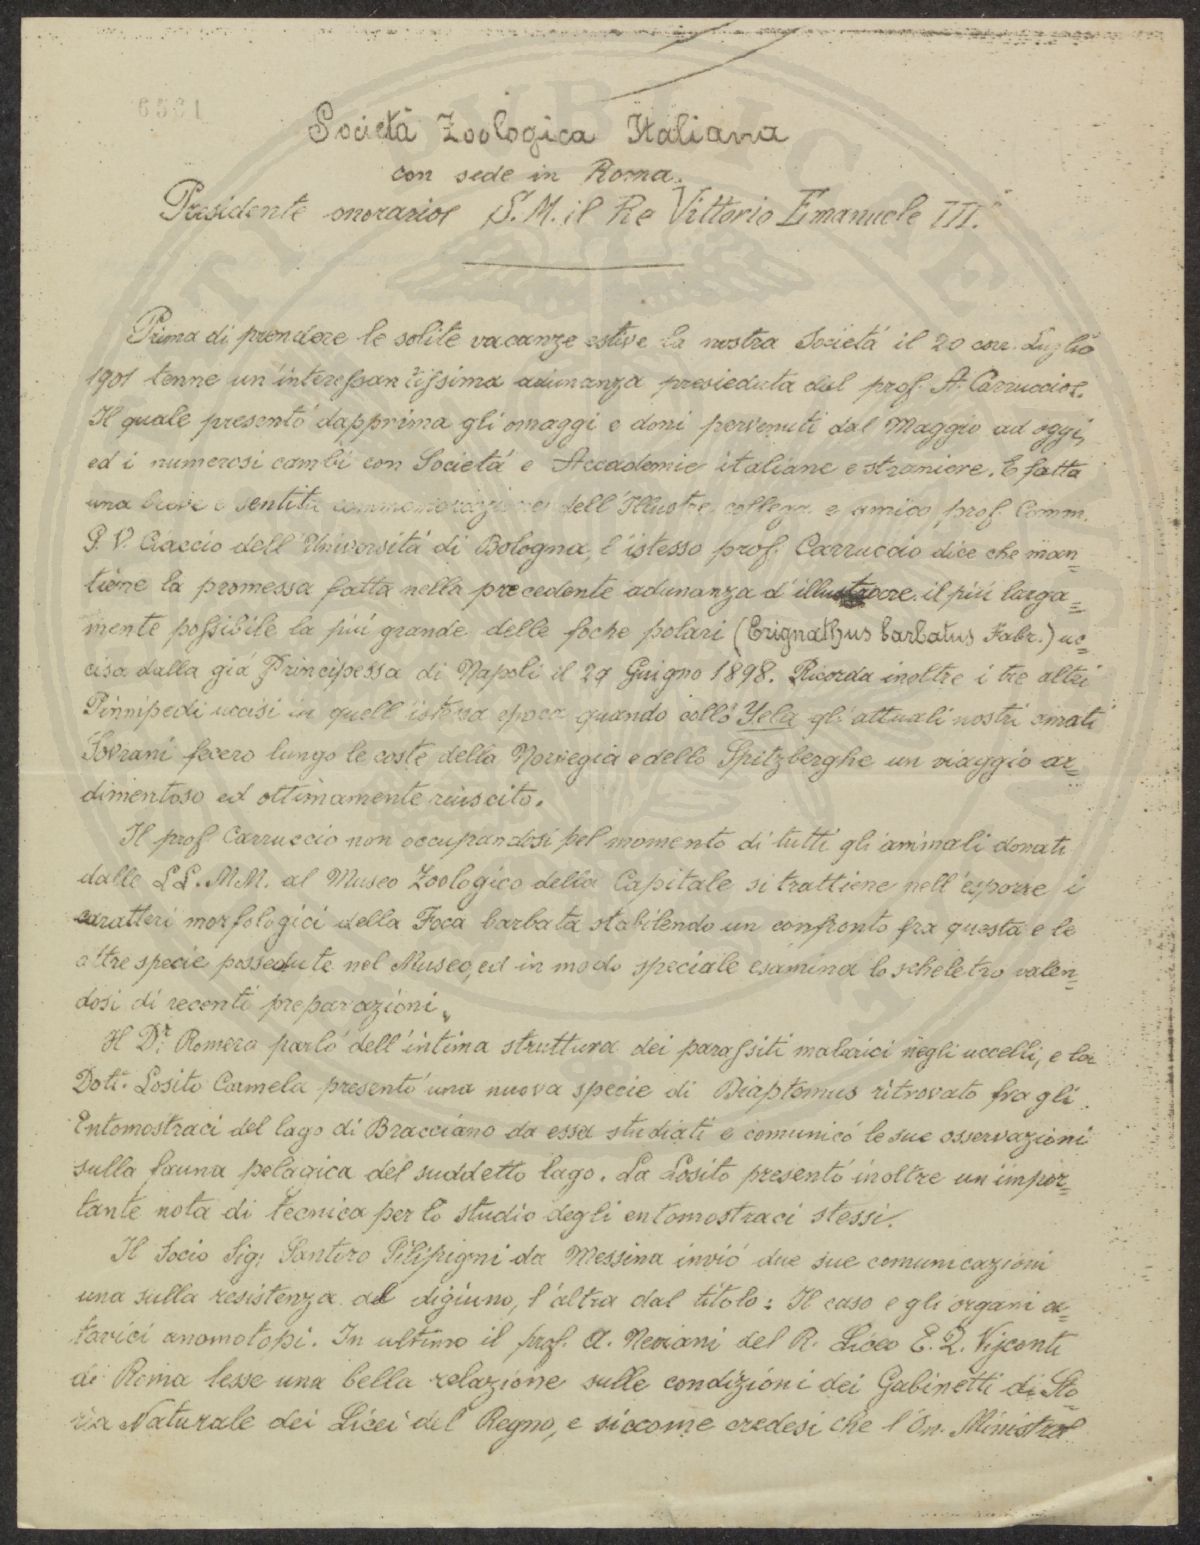 6561
Società Zoologica Italiana
con sede in Roma.
Presidente onorario S. M. il Re Vittorio Emanuele III.
Prima di prendere le solite vacanze estive la nostra Societá il 20 corr. Luglio
1901 tenne un'interessantissima adunanza presieduta dal prof. A. Carruccio.
Il quale presentó dapprima gli omaggi e doni pervenuti dal Maggio ad oggi,
ed i numerosi cambi con Societá e Accademie italiane e straniere. E fatta
una breve e sentita commemorazione dell'Illustre collega e amico prof. Comm.
P. V. Ciaccio dell'Universitá di Bologna, l'istesso prof. Carruccio dice che man=
tiene la promessa fatta nella precedente adunanza d'illustrare il piú larga=
mente possibile la piú grande delle foche polari (Erignathus barbatus Fabr.) uc=
cisa dalla giá Principessa di Napoli il 29 Guigno 1898. Ricorda inoltre i tre altri
Pinnipedi uccisi in quell'istessa epoca quando collo Yela gli attuali nostri amati
Sovrani fecero lungo le coste della Norvegia e dello Spitzberghe un viaggio ar=
dimentoso ed ottimamente riuscito.
Il prof. Carruccio non occupandosi pel momento di tutti gli animali donati
dalle LL. MM. al Museo Zoologico della Capitale si trattiene nell'esporre i
caratteri morfologici della Foca barbata stabilendo un confronto fra questa e le
altre specie possedute nel Museo, ed in modo speciale esamina lo scheletro valen=
dosi di recenti preparazioni.
Il Dr. Romero parló dell'intima struttura dei parassiti malarici negli uccelli, e la
Dott. Losito Carmela presentó una nuova specie di Diaptomus ritrovato fra gli
Entomostraci del lago di Bracciano da essa studiati e comunicó le sue osservazioni
sulla fauna pelagica del suddetto lago. La Losito presentó inoltre un'impor=
tante nota di tecnica per lo studio degli entomostraci stessi.
Il Socio Sig. Santoro Filipigni da Messina invió due sue comunicazioni
una sulla resistenza al digiuno, l'altra dal titolo: Il caso e gli organi a=
tavici anomotopi. In ultimo il prof. A. Neviani del R. Liceo E. Q. Visconti
di Roma lesse una bella relazione sulle condizioni dei Gabinetti di Sto=
ria Naturale dei Licei del Regno, e siccome credesi che l'On. Ministro